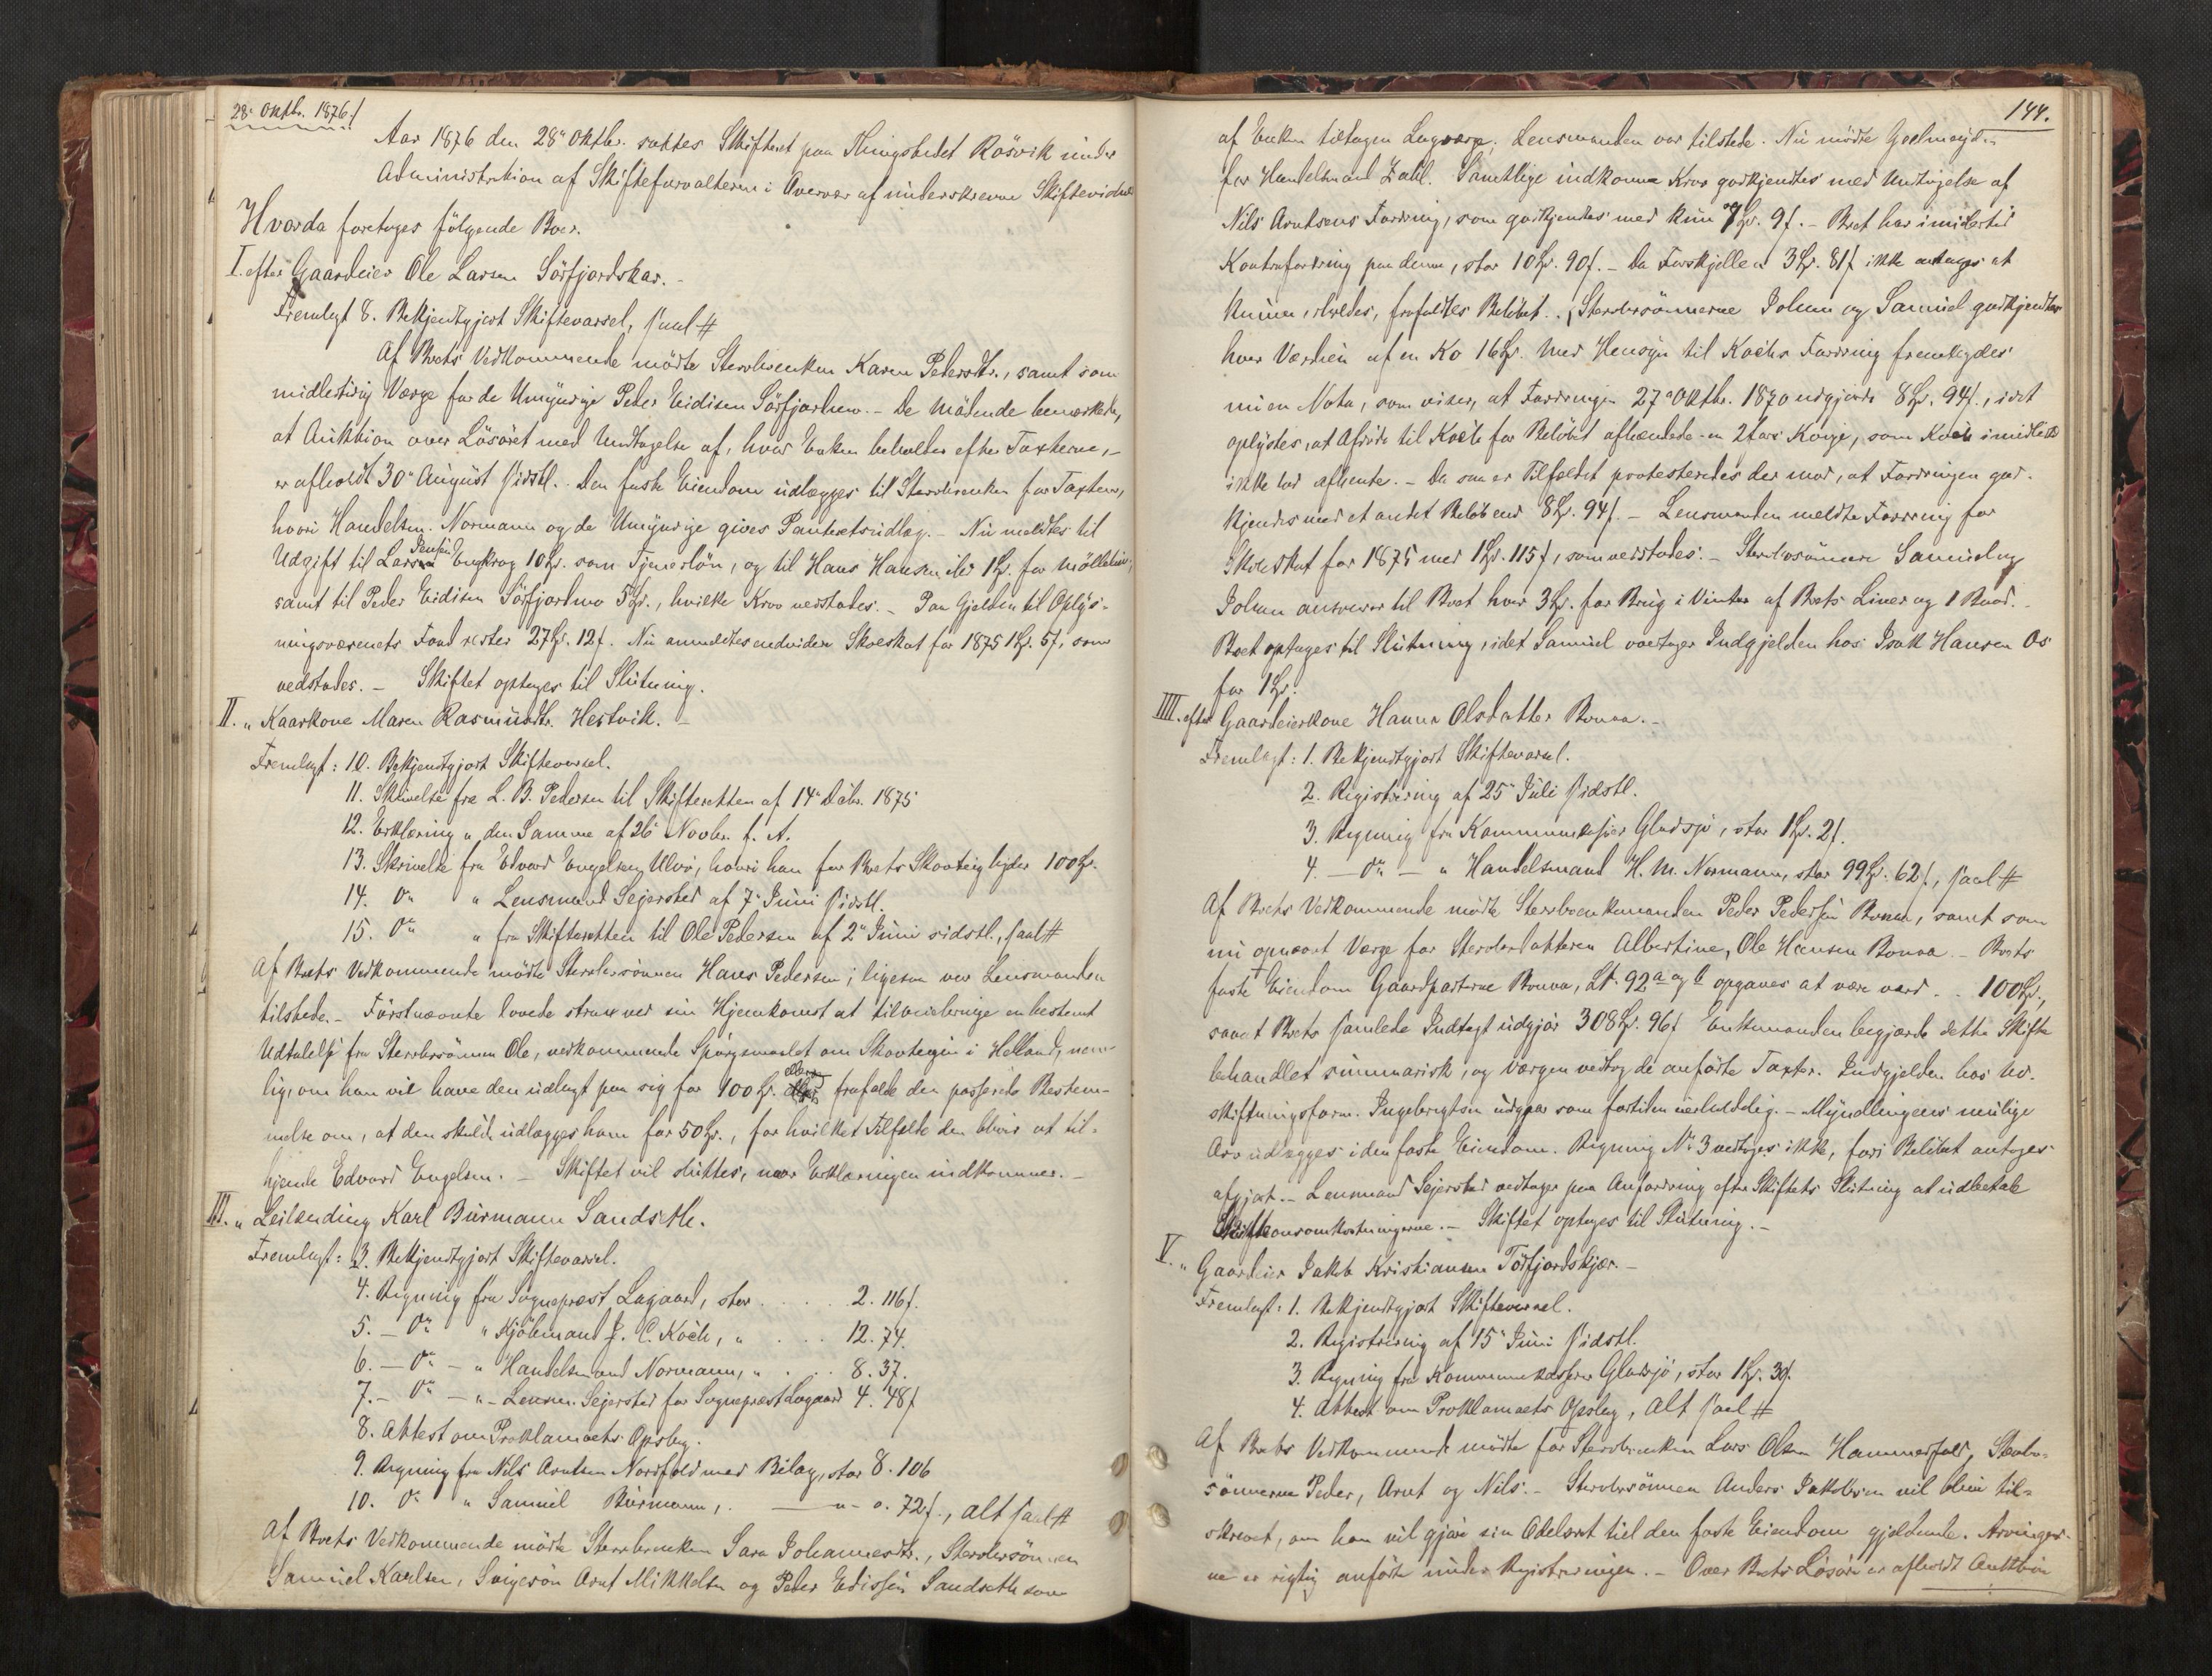 28. Oktbr. 1876.
Aar 1876 den 28" Oktbr. sattes Skifteret paa Thingstedet Rösvik under
Administration af Skifteforvalteren i Overvær af underskrevne Skiftevidner
Hvorda foretages fölgende Boer.
I. efter Gaardeier Ole Larsen Sörfjordskar.-
Fremlagt 8. Bekjendtgjort Skiftevarsel, saal #
Af Boets Vedkommende mödte Stervboenken Karen Pedersdtr., samt som
midlertidig Værge for de Umyndige Peder Eidisen Sörfjordmo.- De Mödende bemærkede,
at Auktion over Lösöret med Undtagelse af, hvad Enken beholder efter Taxterne,-
er afholdt 30" August sidstl.- Den faste Eiendom udlægges til Stervboenken for Taxten,
hvori Handelsm. Normann og de Umyndige gives Panteretsudlæg.- Nu meldtes til
Udgift til Lars Jensen Engkrog 10 Kr. som Tjenerlön, og til Hans Hansen 1 Kr. for Mölleleie,
samt til Peder Eidisen Sörfjordmo 5 Kr., hvilke Krav vedstodes.- Paa Gjelden til Oplys-
ningsværnets Fond rester 27 Kr. 12 f. Nu anmeldtes endvidere Skoleskat for 1875 1 Kr. 5 f, som
vedstodes.- Skiftet optages til Slutning.
II. " Kaarkone Maren Rasmusdtr. Hestvik.-
Fremlagt: 10. Bekjendtgjort Skiftevarsel.
11. Skrivelse fra L. B. Pedersen til Skifteretten af 14" Dcbr. 1875
12. Erklæring " den Samme af 26" Novbr. f. A.
13. Skrivelse fra Edvard Engelsen Ulvö, hvori han for Boets Skovteig byder 100 Kr.
14. Do " Lensmand Sejersted af 7" Juni sidstl.
15. Do " fra Skifteretten til Ole Pedersen af 2" Juni sidstl., saal #
Af Boets Vedkommende mödte Stervbosönnen Hans Pedersen; ligesom var Lensmanden
tilstede.- Förstnævnte lovede strax ved sin Hjemkomst at tilveiebringe en bestemt
Udtalelse fra Stervbosönnen Ole, vedkommende Spörgsmaalet om Skovteigen i Helland, nem-
lig, om han vil have den udlagt paa sig for 100 Kr. eller frafalde den passerede Bestem-
melse om, at den skulde udlægges ham for 50 Kr., for hvilket Tilfælde den bliver at til-
hjemle Edvard Engelsen.- Skiftet vil sluttes, naar Erklæringen indkommer.-
III. " Leilending Karl Burmann Sandseth.
Fremlagt: 3. Bekjendtgjort Skiftevarsel.
4. Regning fra Sogneprest Lagaard, stor .... 2. 116 f.
5. — Do " Kjöbmand J. C. Koch, " ... 12. 74.
6. — Do — " Handelsmand Normann, " ... 8. 37.
7. — Do — " Lensm. Sejersted for Sogneprest Lagaard 4. 48 f
8. Attest om Proklamaets Opslag.
9. Regning fra Nils Arntsen Nordfold med Bilag, stor 8. 106
10. Do " Samuel Burmann, — " - o. 72 f., alt saal #
Af Boets Vedkommende mödte Stervboenken Sara Johannesdtr., Stervbosönnen
Samuel Karlsen, Svigersön Arnt Mikkelsen og Peder Edissen Sandseth som
144.
af Enken tiltagen Lagværge. Lensmanden var tilstede. Nu mödte
for Handelsmand Zahl. Samtlige indkomne Krav godkjendtes med Undtagelse af
Nils Arntsens Fordring, som godkjendtes med kun 7 Kr. 9 f.- Boet har imidlertid
Kontrafordring paa denne, stor 10 Kr. 90 f.- Da Forskjellen 3 Kr. 81 f ikke antages at
kunne, frafaldtes Belöbet.- Stervbosönnerne Johan og Samuel godkjendtes
hver Værdien af en Ko 16 Kr. Med Hensyn til Kochs Fordring fremlagdes
nu en Nota, som viser, at Fordringen 27" Oktbr. 1870 udgjorde 8 Kr. 94 f., idet
oplystes, at Afdöde til Koch for Belöbet afhændede en 2 Aars Kvige, som Koch imidlertid
ikke lod afhente.- Da saa er Tilfældet protesteredes der mod, at Fordringen god-
kjendes med et andet Belöb end 8 Kr. 94 f.- Lensmanden meldte Fordring for
Skoleskat for 1875 med 1 Kr. 115 f, som vedstodes.- Stervbosönnerne Samuel og
Johan ansvarer til Boet hver 3 Kr. for Brug i Vinter af Boets Liner og 1 Baad.-
Boet optages til Slutning, idet Samuel overtager Indgjelden hos Isak Hansen Os
for 1 Kr.
IIII. efter Gaardeierkone Hanna Olsdatter Bonaa.-
Fremlagt: 1. Bekjendtgjort Skiftevarsel.
2. Registrering af 25" Juli sidstl.
3. Regning fra Kommunekasser Gladsjö, stor 1 Kr. 2 f.
4. — Do — " Handelsmand H. M. Normann, stor 99 Kr. 62 f., saal #
Af Boets Vedkommende mödte Stervboenkemanden Peder Pedersen Bonaa, samt som
nu opnævnt Værge for Stervbodatteren Albertine, Ole Hansen Bonaa.- Boets
faste Eiendom Gaardparterne Bonaa, L№ 92 a og b opgaves at være værd .. 100 Kr.,
samt Boets samlede Indtægt udgjör 308 Kr. 96 f. Enkemanden begjærede dette Skifte
behandlet summarisk, og Værgen vedtog de anförte Taxter. Indgjelden hos Ud-
skiftningsform. Ingebrigtsen udgaar som fortiden uerholdelig.- Myndlingens mulige
Arv udlægges i den faste Eiendom. Regning № 3 vedtages ikke, fordi Belöbet antages
afgjort.- Lensmand Sejersted vedtager paa Anfordring efter Skiftets Slutning at udbetale
Skifteomkostningerne.- Skiftet optages til Slutning.-
V. " Gaardeier Jakob Kristiansen Törfjordskjær.-
Fremlagt: 1. Bekjendtgjort Skiftevarsel.
2. Registrering af 15" Juni sidstl.
3. Regning fra Kommunekasserer Gladsjö, stor 1 Kr. 30 f.
4. Attest om Proklamaets Opslag, alt saal #
Af Boets Vedkommende mödte for Stervboenken Lars Olsen Hammerfald, Stervbo-
sönnerne Peder, Arnt og Nils.- Stervbosönnen Anders Jakobsen vil blive til-
skrevet, om han vil gjöre sin Odelsret til den faste Eiendom gjeldende. Arvinger-
ne er rigtig anförte under Registreringen.- Over Boets Lösöre er afholdt Auktion